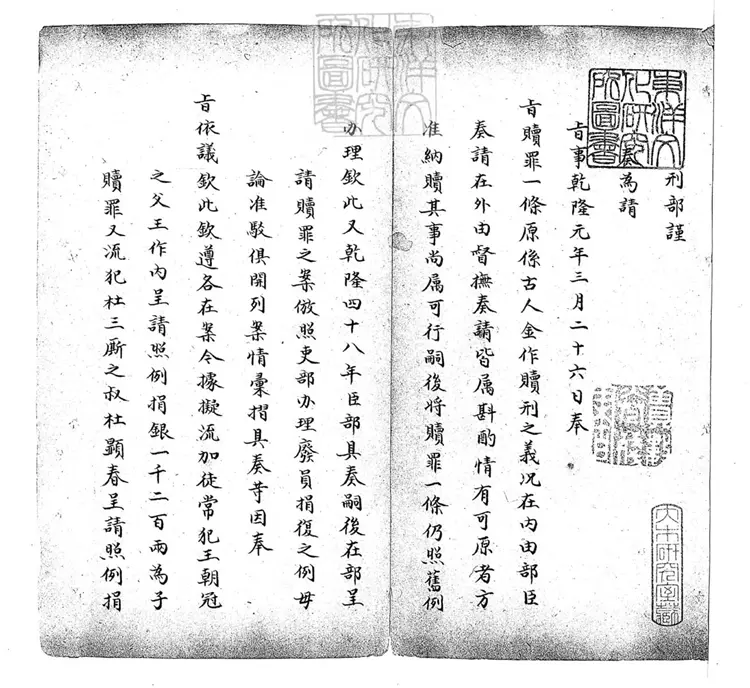 刑部謹
奏為請
旨事乾隆元年三月二十六日奉
旨贖罪一條原係古人金作贖刑之義况在內由部臣
奏請在外由督撫奏請皆属斟酌情有可原者方
准納贖其事尚属可行嗣後將贖罪一條仍照舊例
办理欽此又乾隆四十八年臣部具奏嗣後在部呈
請贖罪之案倣照吏部办理廢員捐復之例毋
論准駁俱開列案情彙摺具奏等因奉
旨依議欽此欽遵各在案今據擬流加徒常犯王朝冠
之父王作內呈請照例捐銀一千二百兩為子
贖罪又流犯杜三厮之叔杜顯春呈請照例捐
東洋文化研究所圖書
東洋文化研究所圖書
大木研究室藏